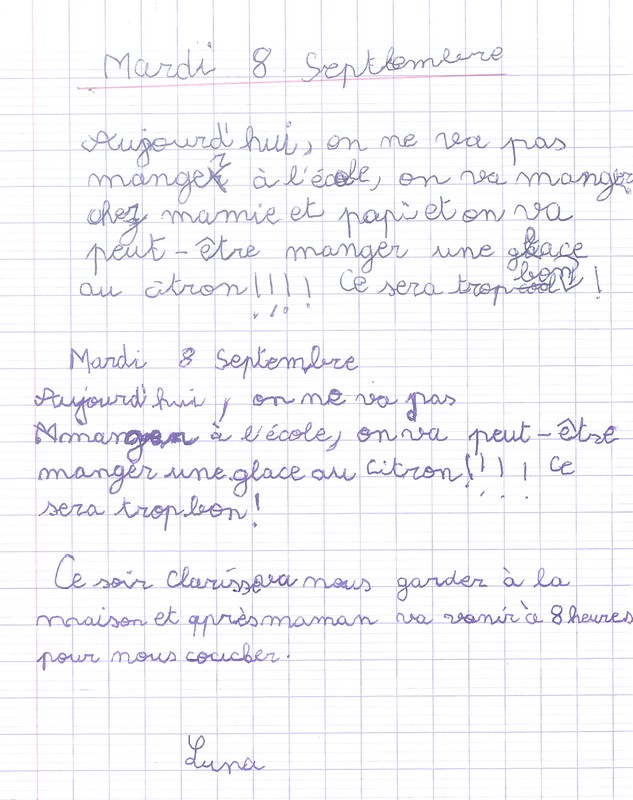 Mardi 8 Septembre
Aujourd'hui, on ne va pas
manger à l'école, on va manger
chez mamie et papi et on va
peut-être manger une glace
au citron!!!! Ce sera trop bon!
Mardi 8 Septembre
Aujourd'hui, on ne va pas
manger à l'école, on va peut-être
manger une glace au citron!!!! Ce
sera trop bon!
Ce soir Clarisse va nous garder à la
maison et après maman va venir à 8 heures
pour nous coucher.
Luna